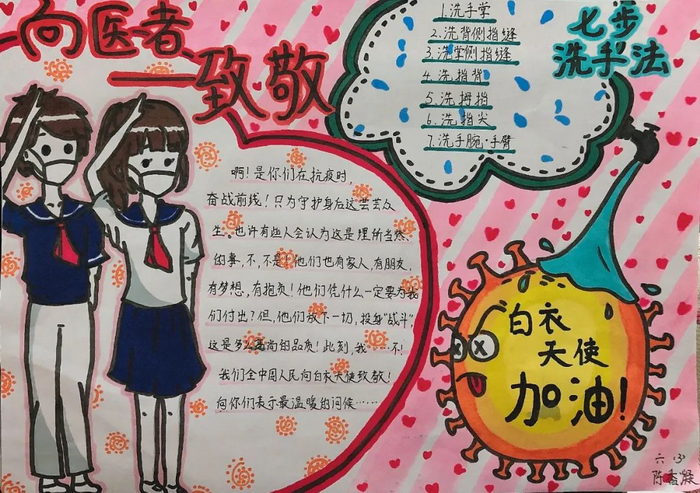 向医者
致敬
1.洗手掌
2.洗背侧指缝
3.洗掌侧指缝
4.洗指背
5.洗拇指
6.洗指尖
7.洗手腕·手臂
七步
洗手法
啊!是你们在抗疫时,
奋战前线!只为守护身后这芸芸众
生。也许有些人会认为这是理所当然
的事,不,不是!他们也有家人,有朋友,
有梦想,有抱负!他们凭什么一定要为我
们付出?但,他们放下一切,投身“战斗”,
这是多么高尚的品质!此刻,我……不!
我们全中国人民向白衣天使致敬!
向你们表示最温暖的问候……
白衣
天使
加油!
六(3)
陈